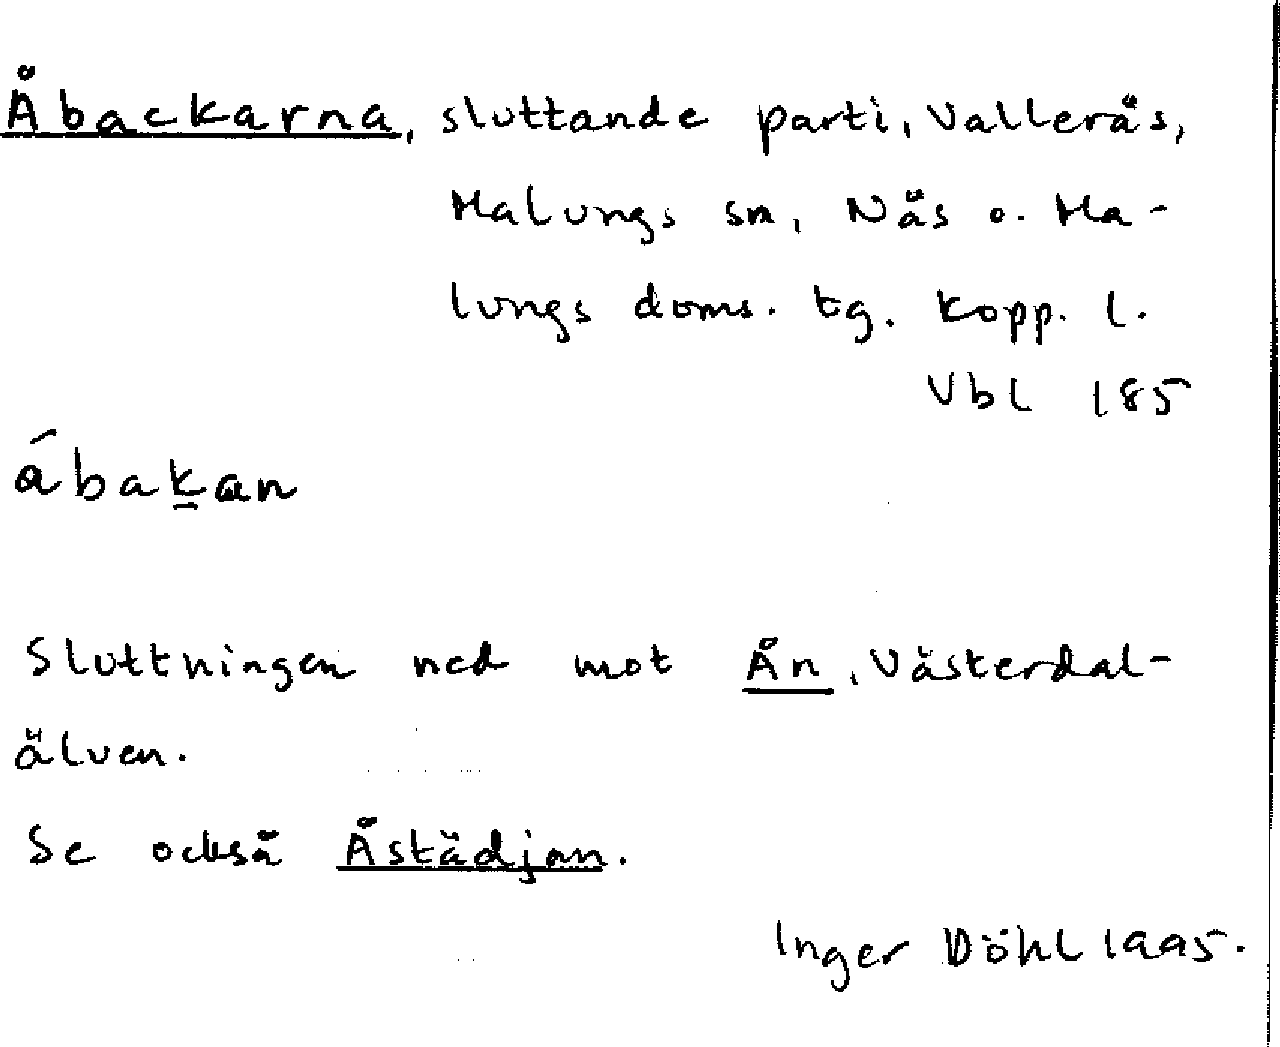 Åbackarna, sluttande parti, Vallerås,
Malungs sn, Näs o. Ma-
lungs doms. tg. Kopp. l.
Vbl 185
ábaḵan
Sluttningen ned mot Ån, Västerdal-
älven.
Se också Åstädjan.
Inger Döhl 1995.